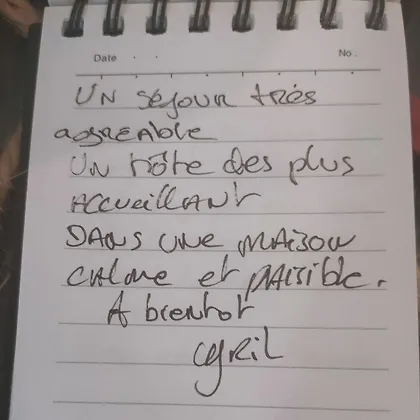 Date . .
No.
UN séjour très
agréable
UN hôte des plus
ACCUEILLANT
DANS UNE MAISON
CALME et PAISIBLE.
A bientot
CYRIL